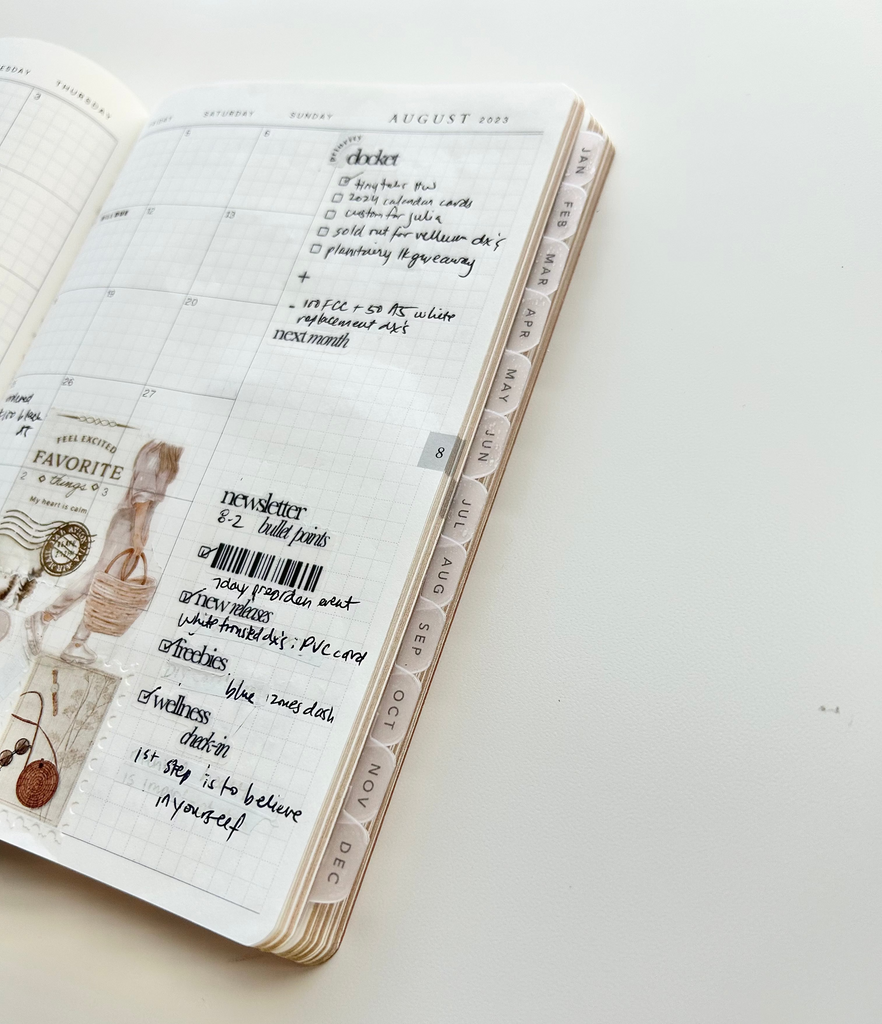 THURSDAY
SATURDAY
SUNDAY
AUGUST 2023
3
5
6
12
13
19
20
26
27
2
3
priority
docket
tiny talks HW
2024 calendar cards
custom for julia
sold out for vellum dx's
giveaway
+
- 100 FCC + 50 A5 white
replacement dx's
next month
ordered
black
FEEL EXCITED
FAVORITE
things
My heart is calm
8
newsletter
8-2 bullet points
7day preorder event
new releases
white frosted dx's; PVC card
freebies
blue dash
wellness
check-in
1st step is to believe
in yourself
JAN
FEB
MAR
APR
MAY
JUN
JUL
AUG
SEP
OCT
NOV
DEC